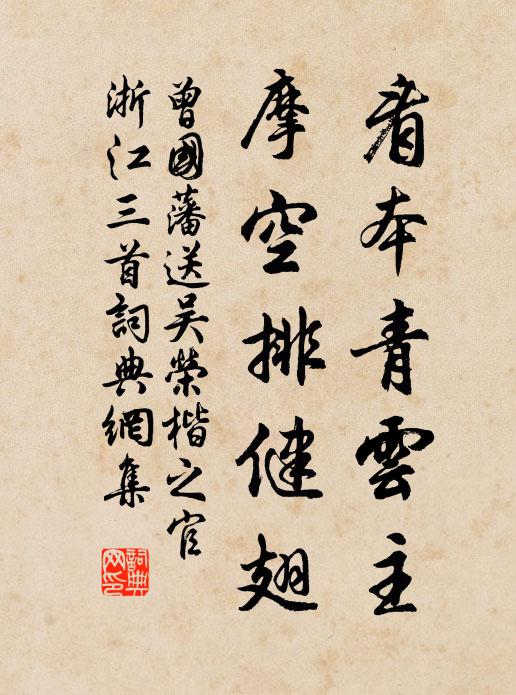 看本青雲主
摩空排健翅
曾國藩送吴榮楷之官
浙江三首詞典網集
詞典
网印